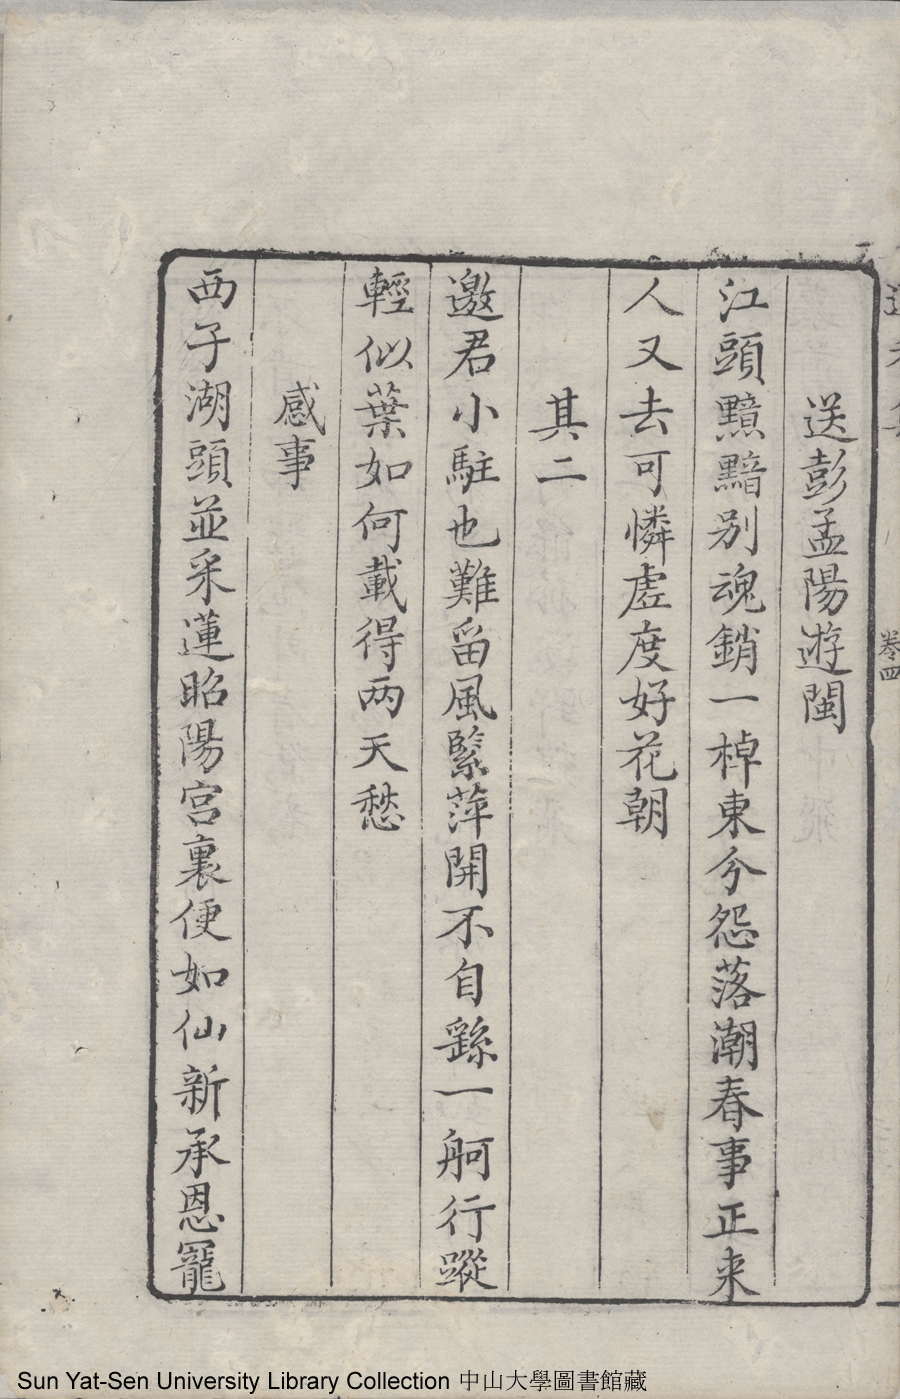 送彭孟陽遊閩
江頭黯黯別魂銷一棹東兮怨落潮春事正来
人又去可憐虛度好花朝
其二
邀君小駐也難留風緊萍開不自繇一舸行蹤
輕似葉如何載得两天愁
感事
西子湖頭並采蓮昭陽宮裏便如仙新承恩寵
卷四
Sun Yat-Sen University Library Collection 中山大學圖書館藏